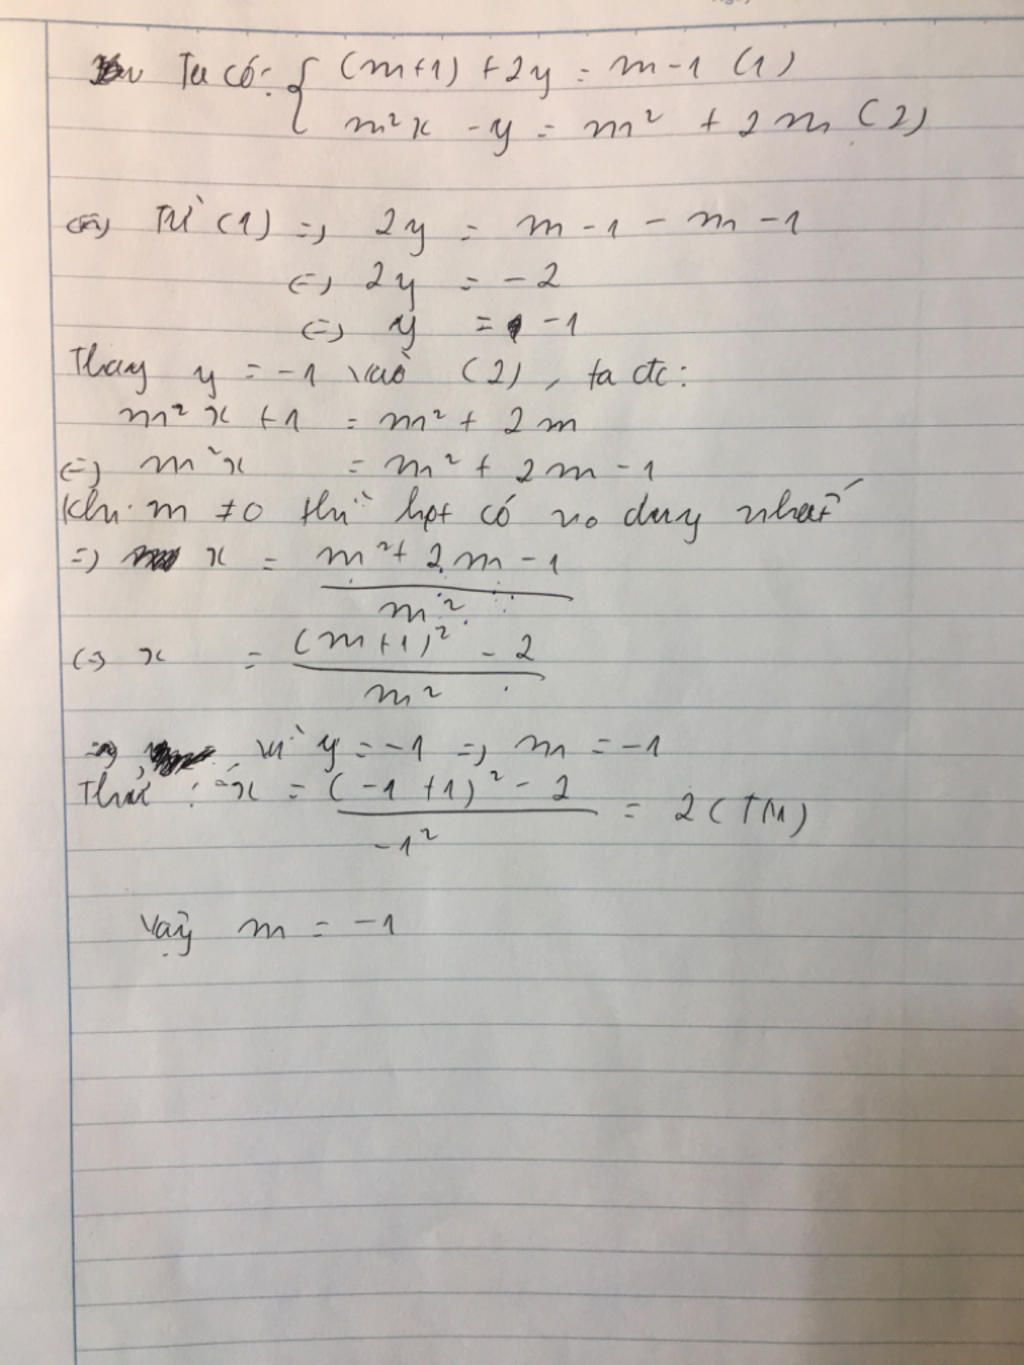 Ta có: { (m+1) + 2y = m-1 (1)
m²x - y = m² + 2m (2)
(=) Từ (1) => 2y = m - 1 - m - 1
(=) 2y = -2
(=) y = -1
Thay y = -1 vào (2), ta đc:
m²x + 1 = m² + 2m
(=) m²x = m² + 2m - 1
Khi m ≠ 0 thì hpt có no duy nhất
=) x = (m² + 2m - 1) / m²
(=) x = ((m+1)² - 2) / m²
=) vì y = -1 =) m = -1
Thử : x = ((-1+1)² - 2) / -1² = 2 (TM)
Vậy m = -1